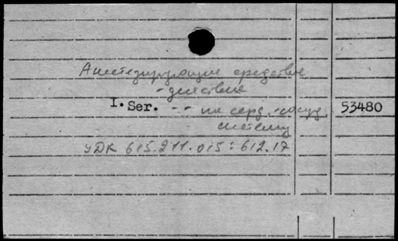 Анестезирующие средства
- действие
I. Ser. -- на серд.-сосуд. 53480
систему
УДК 615.211.015:612.17